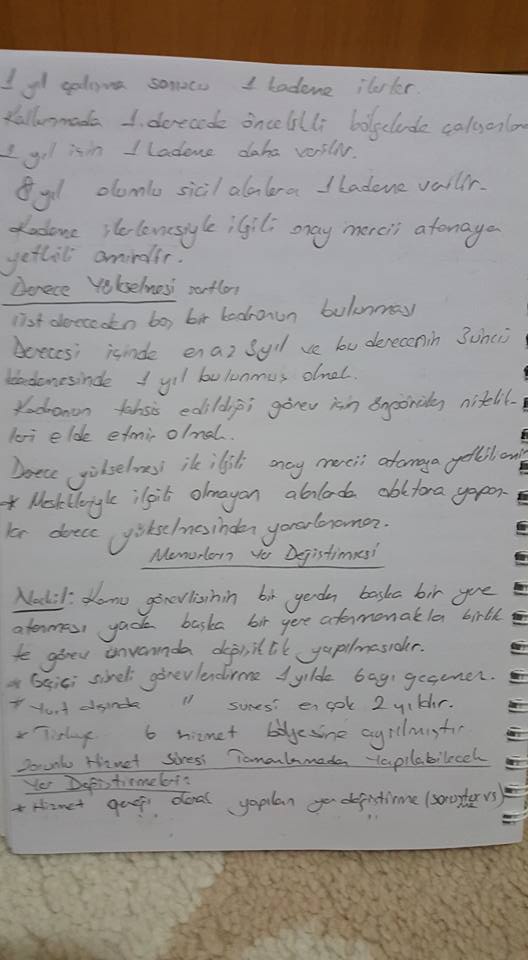 1 yıl çalışma sonucu 1 kademe ilerler.
Kalkınmada 1. derecede öncelikli bölgelerde çalışanlara
1 yıl için 1 kademe daha verilir.
8 yıl olumlu sicil alanlara 1 kademe verilir.
Kademe ilerlemesiyle ilgili onay mercii atamaya
yetkili amirdir.
Derece Yükselmesi şartları
Üst dereceden boş bir kadronun bulunması
Derecesi içinde en az 3 yıl ve bu derecenin 3üncü
kademesinde 1 yıl bulunmuş olmak.
Kadronun tahsis edildiği görev için öngörülen nitelik-
leri elde etmiş olmak.
Derece yükselmesi ile ilgili onay mercii atamaya yetkili amir
* Meslekleriyle ilgili olmayan alanlarda doktora yapan
lar derece yükselmesinden yararlanamaz.
Memurların Yer Değiştirmesi
Nakil: Kamu görevlisinin bir yerden başka bir yere
atanması yada başka bir yere atanmamakla birlik
te görev ünvanında değişiklik yapılmasıdır.
* Geçici süreli görevlendirme 1 yılda 6 ayı geçemez.
* Yurt dışında " süresi en çok 2 yıldır.
* Türkiye 6 hizmet bölgesine ayrılmıştır
Zorunlu Hizmet Süresi Tamamlanmadan Yapılabilecek
Yer Değiştirmeleri:
* Hizmet gereği olarak yapılan yer değiştirme (soruştur vs)